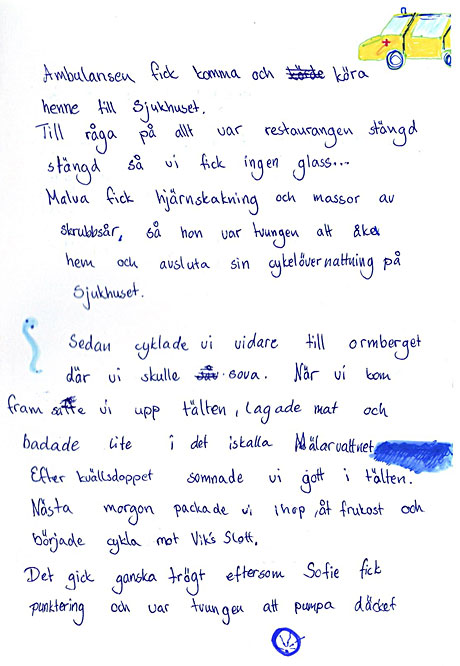 Ambulansen fick komma och körde köra
henne till Sjukhuset.
Till råga på allt var restaurangen stängd
stängd så vi fick ingen glass...
Malva fick hjärnskakning och massor av
skrubbsår, så hon var tvungen att åka
hem och avsluta sin cykelövernattning på
Sjukhuset.
Sedan cyklade vi vidare till ormberget
där vi skulle sova. När vi kom
fram satte vi upp tälten, lagade mat och
badade lite i det iskalla Mälarvattnet
Efter kvällsdoppet somnade vi gott i tälten.
Nästa morgon packade vi ihop, åt frukost och
började cykla mot Vik's Slott.
Det gick ganska trögt eftersom Sofie fick
punktering och var tvungen att pumpa däcket